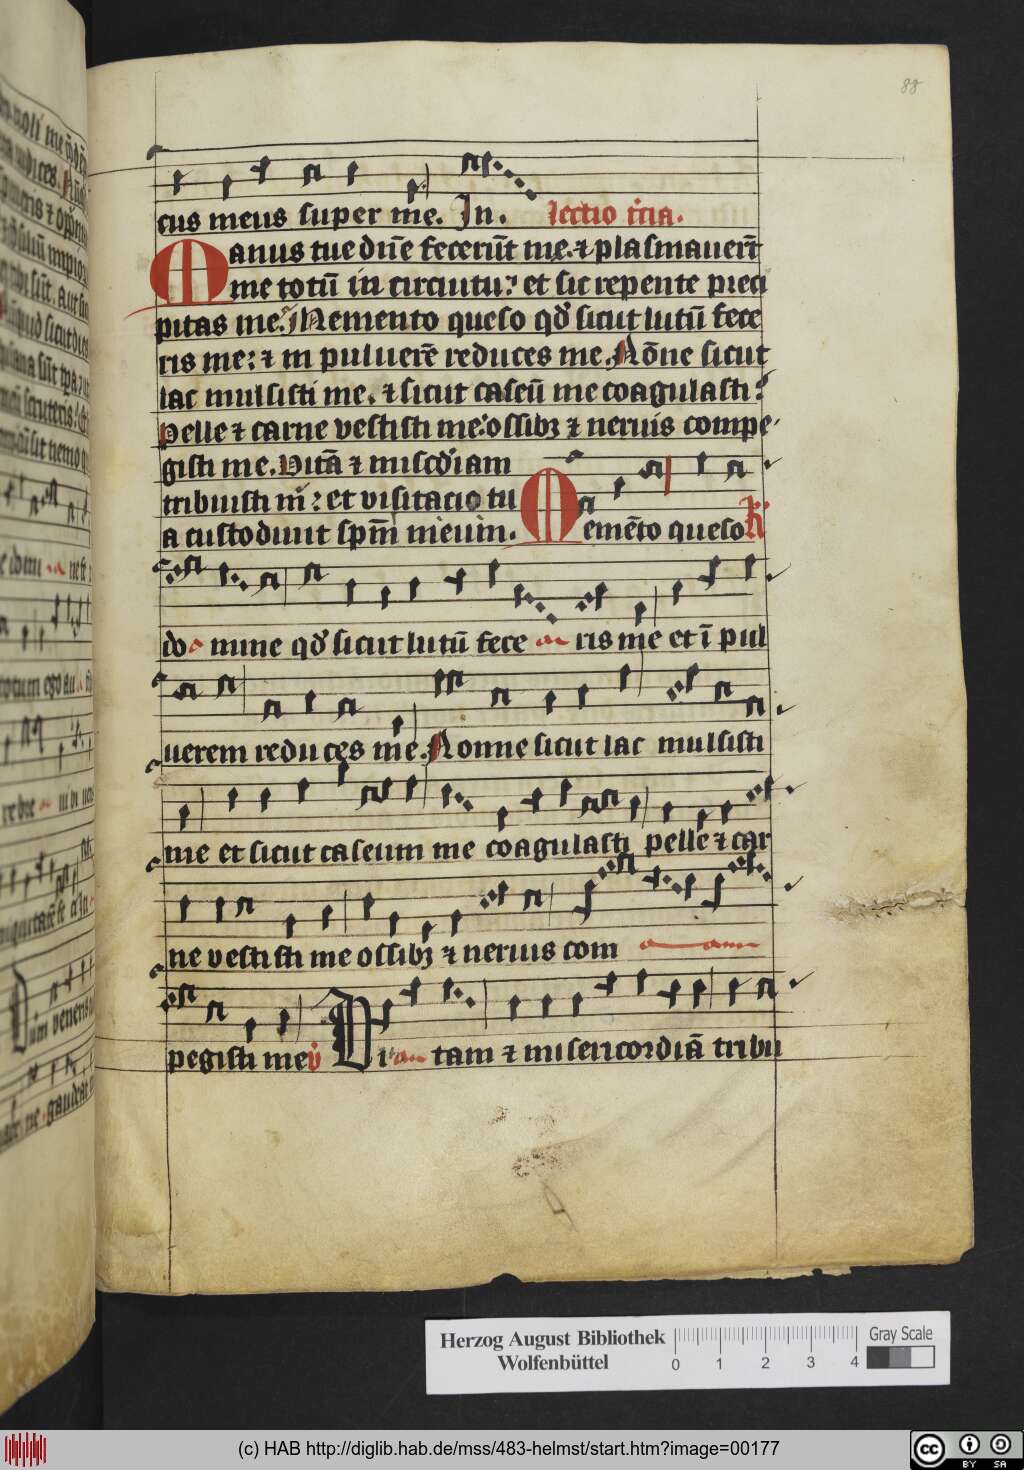 88
cus meus super me. In. lectio t̄cia.
Manus tue dn̄e fecerūt me. ⁊ plasmauer̄t
me totū in circuitu? et sic repente preci
pitas me. Memento queso qd̓ sicut lutū fece
ris me: ⁊ in puluerē reduces me. Nōne sicut
lac mulsisti me. ⁊ sicut caseū me coagulasti?
Pelle ⁊ carne vestisti me: ossibꝫ ⁊ neruis compe
gisti me. Vitā ⁊ misc̄diam
tribuisti m̄: et visitacio tu
a custodiuit spm̄ meum. Memēto queso R̄
do mine qd̓ sicut lutū fece ris me et ī pul
uerem reduces me. Nonne sicut lac mulsisti
me et sicut caseum me coagulasti pelle ⁊ car
ne vestisti me ossibꝫ ⁊ neruis com
pegisti me v̄ Vi tam ⁊ misericordiā tribu
Herzog August Bibliothek
Wolfenbüttel
0 1 2 3 4
Gray Scale
(c) HAB http://diglib.hab.de/mss/483-helmst/start.htm?image=00177
cc BY SA